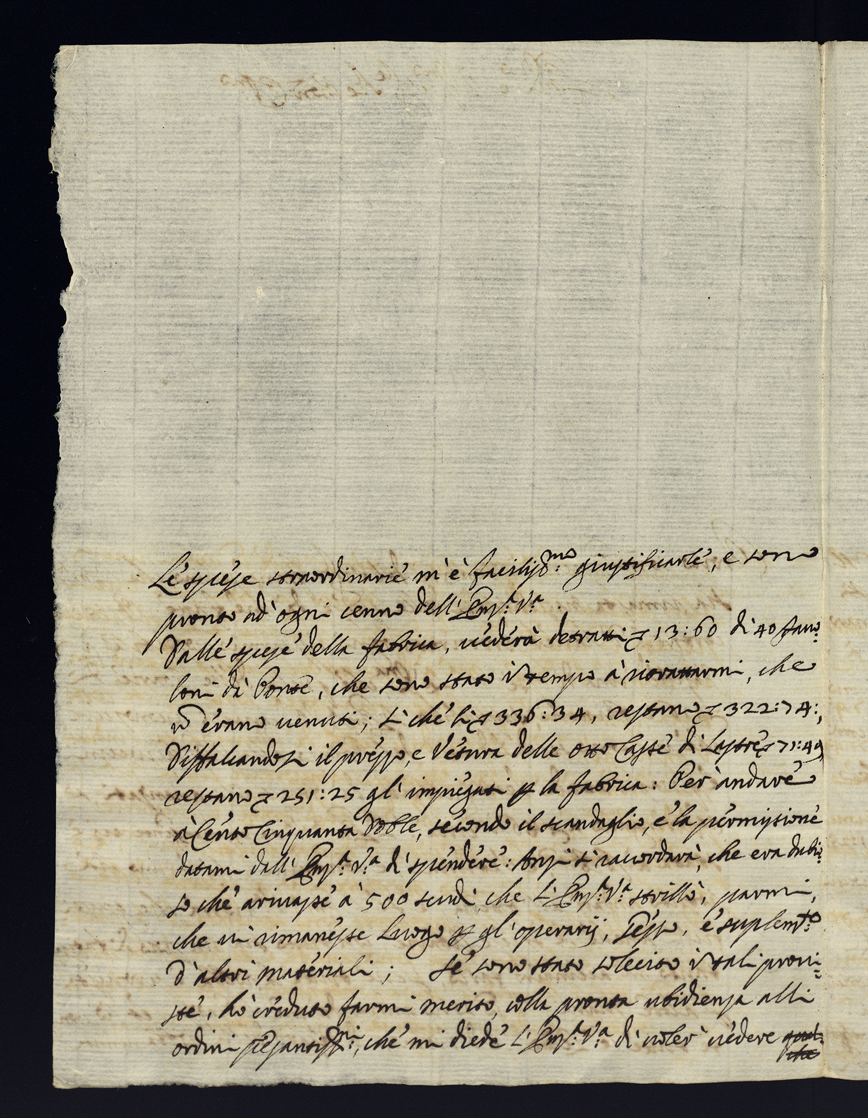 Le spese straordinarie m'è faciliss.mo giustificarle, e sono
pronto ad ogni cenno dell' Em.a V.a
Dalle spese della fabrica, vederà detratti 13:60 di 40 Tavo-
loni da Ponte, che sono stato in tempo à ritrattarmi, che
n̄ erano venuti; si che li 336:34, restano 322:74:,
Diffalcandosi il prezzo, e Vetura delle otto Casse di Lastre 71:49
restano 251:25 gl' impiegati p la fabrica: Per andare
à Cento Cinquanta Doble, secondo il scandaglio, e la permissione
datami dall' Em.a V.a di spendere: Anzi si racordarà, che era dubi-
so che arivasse à 500 scudi, che l' Em.a V.a strillò, parmi,
che vi rimanesse Luogo p gl' operarij, Gesso, e suplem.to
d'altri materiali; Se sono stato solecito in tali provi-
ste, hò creduto farmi merito, colla pronta ubidienza alli
ordini pesantiss.i, che mi diede l' Em.a V.a di voler vedere